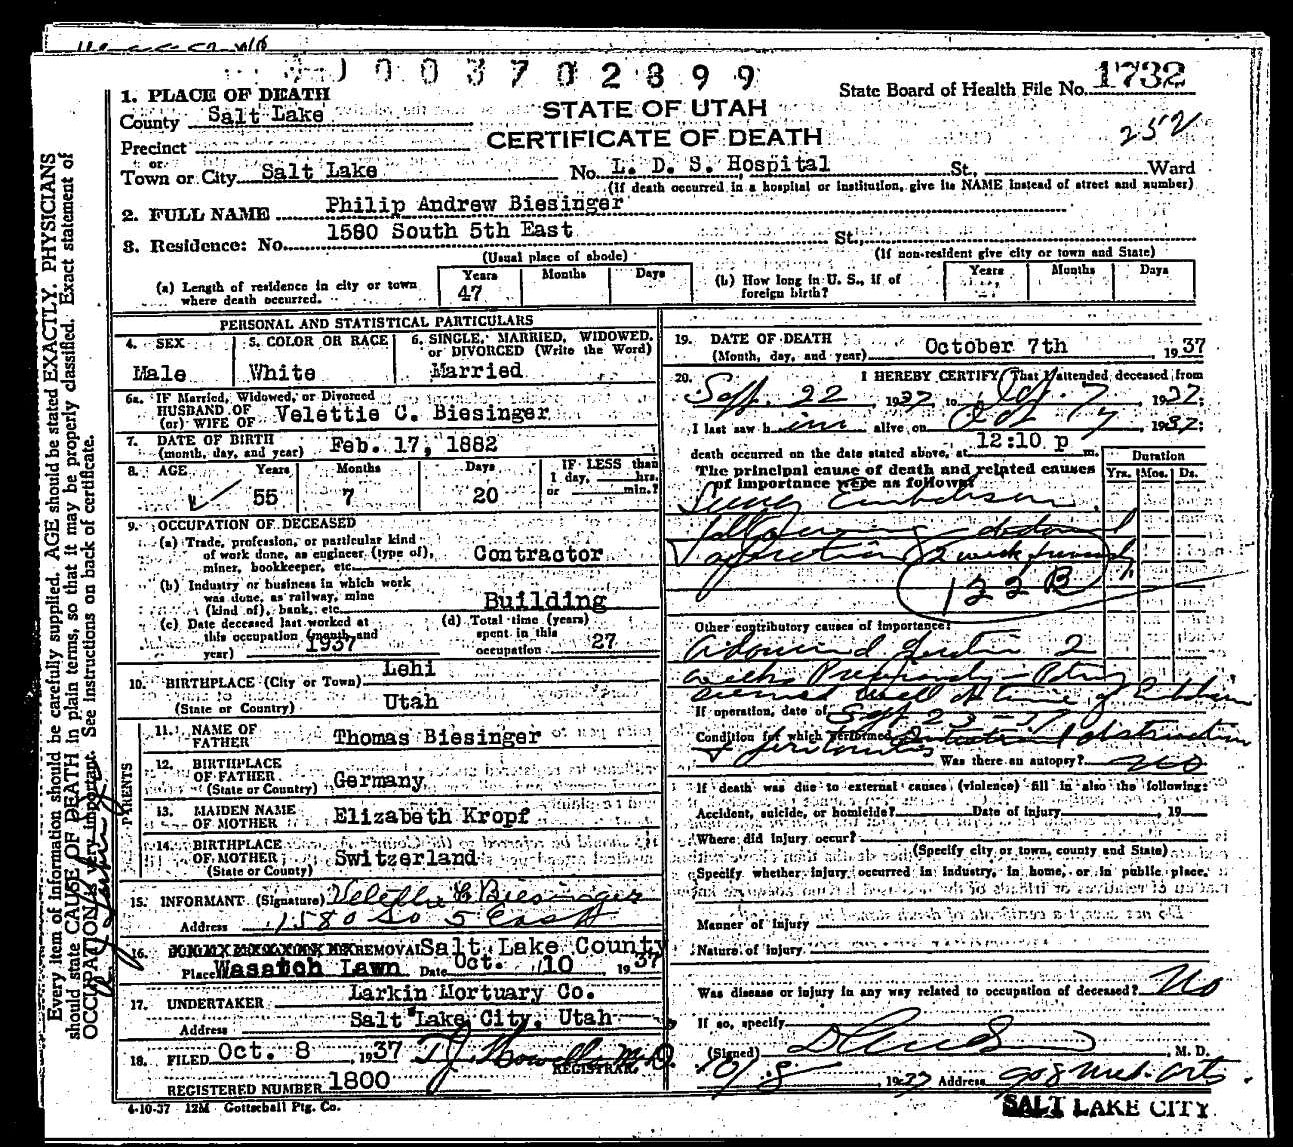 003702399
State Board of Health File No. 1732
1. PLACE OF DEATH
STATE OF UTAH
County Salt Lake
CERTIFICATE OF DEATH
252
Precinct
or
Town or City Salt Lake No. L. D. S. Hospital St., Ward
(If death occurred in a hospital or institution, give its NAME instead of street and number)
2. FULL NAME Philip Andrew Biesinger
3. Residence: No. 1580 South 5th East St.,
(Usual place of abode) (If non-resident give city or town and State)
(a) Length of residence in city or town where death occurred. Years 47 Months Days
(b) How long in U. S., if of foreign birth? Years Months Days
PERSONAL AND STATISTICAL PARTICULARS
4. SEX 5. COLOR OR RACE 6. SINGLE, MARRIED, WIDOWED, or DIVORCED (Write the Word)
Male White Married
6a. IF Married, Widowed, or Divorced
HUSBAND OF
(or) WIFE OF Velettie C. Biesinger
7. DATE OF BIRTH
(month, day, and year) Feb. 17, 1882
8. AGE Years Months Days IF LESS than
1 day, hrs.
or min.?
55 7 20
9. OCCUPATION OF DECEASED
(a) Trade, profession, or particular kind
of work done, as engineer (type of),
miner, bookkeeper, etc. Contractor
(b) Industry or business in which work
was done, as railway, mine
(kind of), bank, etc. Building
(c) Date deceased last worked at
this occupation (month and
year) 1937
(d) Total time (years)
spent in this
occupation 27
10. BIRTHPLACE (City or Town) Lehi
(State or Country) Utah
PARENTS
11. NAME OF
FATHER Thomas Biesinger
12. BIRTHPLACE
OF FATHER
(State or Country) Germany
13. MAIDEN NAME
OF MOTHER Elizabeth Kropf
14. BIRTHPLACE
OF MOTHER
(State or County) Switzerland
15. INFORMANT (Signature) Velettie C Biesinger
Address 1580 So 5 East
16. REMOVAL Salt Lake County
Place Wasatch Lawn Date Oct. 10, 1937
17. UNDERTAKER Larkin Mortuary Co.
Address Salt Lake City, Utah
18. FILED Oct. 8, 1937 T J Howells M.D.
REGISTRAR.
REGISTERED NUMBER 1800
4-10-37 12M Gottschall Ptg. Co.
19. DATE OF DEATH
(Month, day, and year) October 7th 1937
20. I HEREBY CERTIFY, That I attended deceased from
Sept. 22 1937 to Oct. 7, 1937;
I last saw him alive on Oct 7, 1937;
death occurred on the date stated above, at 12:10 p m.
The principal cause of death and related causes
of importance were as follows:
Duration
Yrs. Mos. Ds.
Embolism
operation 2 weeks
122 B
Other contributory causes of importance:
2
weeks
seemed well at time of
If operation, date of Sept 23-37
Condition for which performed Intestinal obstruction
& peritonitis
Was there an autopsy? No
If death was due to external causes (violence) fill in also the following:
Accident, suicide, or homicide? Date of injury , 19
Where did injury occur?
(Specify city or town, county and State)
Specify whether injury occurred in industry, in home, or in public place.
Manner of injury
Nature of injury
Was disease or injury in any way related to occupation of deceased? No
If so, specify
(Signed) , M. D.
10/8 1937 Address 908 Med. Arts
SALT LAKE CITY
Every item of information should be carefully supplied. AGE should be stated EXACTLY. PHYSICIANS
should state CAUSE OF DEATH in plain terms, so that it may be properly classified. Exact statement of
OCCUPATION is very important. See instructions on back of certificate.